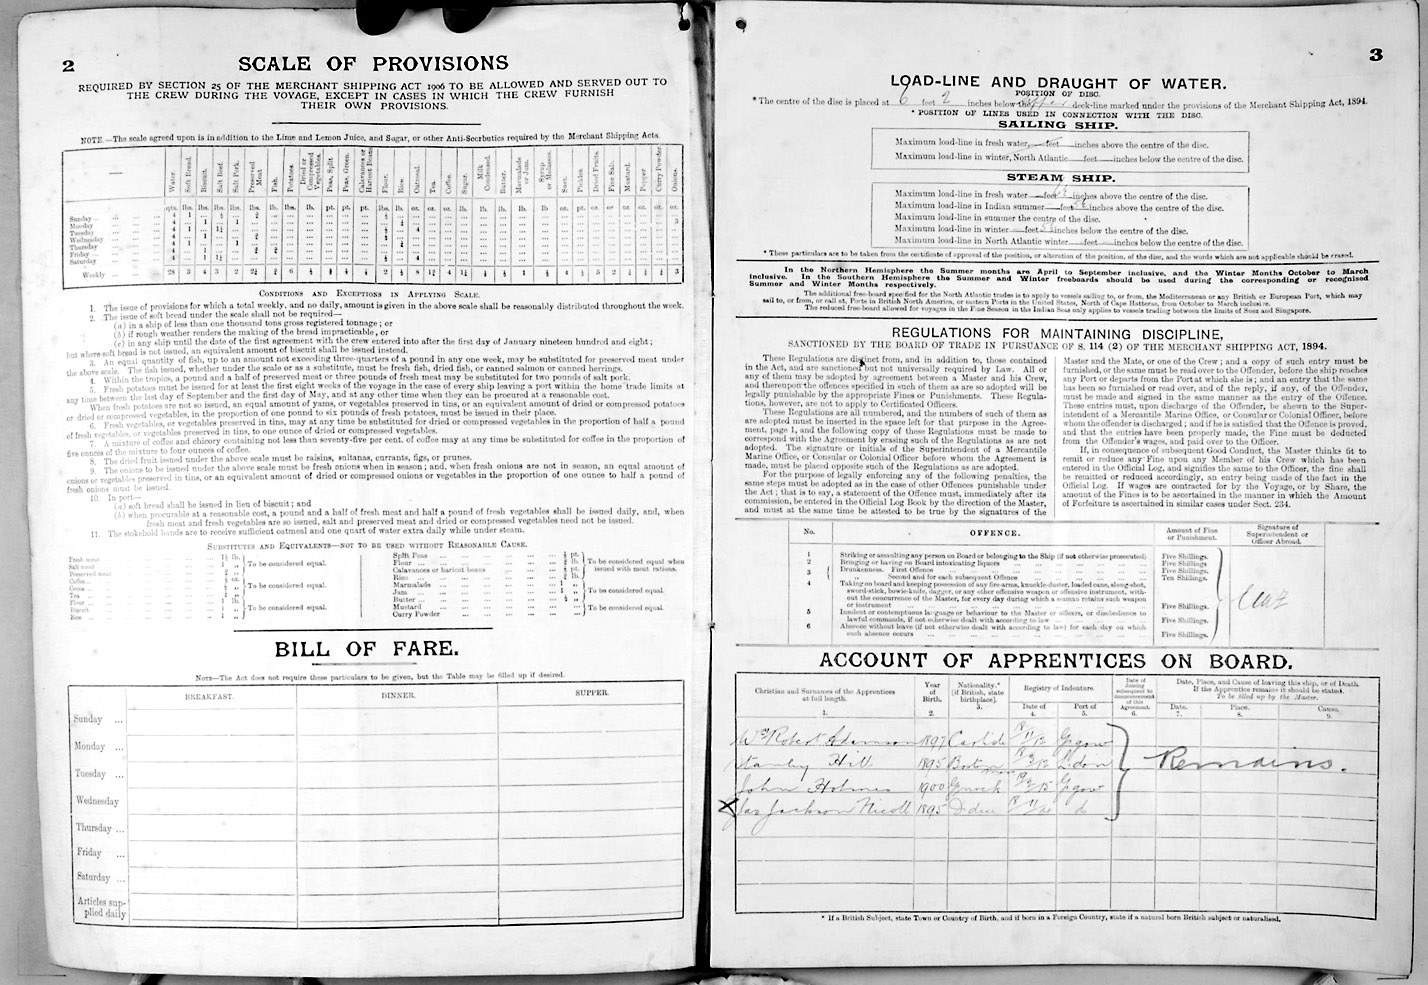 2
SCALE OF PROVISIONS
REQUIRED BY SECTION 25 OF THE MERCHANT SHIPPING ACT 1906 TO BE ALLOWED AND SERVED OUT TO
THE CREW DURING THE VOYAGE, EXCEPT IN CASES IN WHICH THE CREW FURNISH
THEIR OWN PROVISIONS.
NOTE.—The scale agreed upon is in addition to the Lime and Lemon Juice, and Sugar, or other Anti-Scorbutics required by the Merchant Shipping Acts.
Water. Soft Bread. Biscuit. Salt Beef. Salt Pork. Preserved Meat. Fish. Potatoes. Dried or Compressed Vegetables. Peas, Split Peas, Green. Calavances or Haricot Beans Flour. Rice. Oatmeal. Tea. Coffee. Sugar. Milk Condensed. Butter. Marmalade or Jam. Syrup or Molasses. Suet. Pickles. Dried Fruits. Fine Salt. Mustard. Pepper Curry Powder. Onions.
qts. lbs. lbs. lbs. lbs. lbs. lb. lbs. lb. pt. pt. pt. lbs. lb. oz. oz. oz. lb. lb. lb. lb. lb. oz. pt. oz. oz oz. oz. oz. oz.
Sunday ...
Monday ...
Tuesday ...
Wednesday ...
Thursday ...
Friday ...
Saturday ...
Weekly ...
CONDITIONS AND EXCEPTIONS IN APPLYING SCALE.
1. The issue of provisions for which a total weekly, and no daily, amount is given in the above scale shall be reasonably distributed throughout the week.
2. The issue of soft bread under the scale shall not be required—
(a) in a ship of less than one thousand tons gross registered tonnage; or
(b) if rough weather renders the making of the bread impracticable, or
(c) in any ship until the date of the first agreement with the crew entered into after the first day of January nineteen hundred and eight;
but where soft bread is not issued, an equivalent amount of biscuit shall be issued instead.
3. An equal quantity of fish, up to an amount not exceeding three-quarters of a pound in any one week, may be substituted for preserved meat under
the above scale. The fish issued, whether under the scale or as a substitute, must be fresh fish, dried fish, or canned salmon or canned herrings.
4. Within the tropics, a pound and a half of preserved meat or three pounds of fresh meat may be substituted for two pounds of salt pork.
5. Fresh potatoes must be issued for at least the first eight weeks of the voyage in the case of every ship leaving a port within the home trade limits at
any time between the last day of September and the first day of May, and at any other time when they can be procured at a reasonable cost.
When fresh potatoes are not so issued, an equal amount of yams, or vegetables preserved in tins, or an equivalent amount of dried or compressed potatoes
or dried or compressed vegetables, in the proportion of one pound to six pounds of fresh potatoes, must be issued in their place.
6. Fresh vegetables, or vegetables preserved in tins, may at any time be substituted for dried or compressed vegetables in the proportion of half a pound
of fresh vegetables, or vegetables preserved in tins, to one ounce of dried or compressed vegetables.
7. A mixture of coffee and chicory containing not less than seventy-five per cent. of coffee may at any time be substituted for coffee in the proportion of
five ounces of the mixture to four ounces of coffee.
8. The dried fruit issued under the above scale must be raisins, sultanas, currants, figs, or prunes.
9. The onions to be issued under the above scale must be fresh onions when in season; and, when fresh onions are not in season, an equal amount of
onions or vegetables preserved in tins, or an equivalent amount of dried or compressed onions or vegetables in the proportion of one ounce to half a pound of
fresh onions must be issued.
10. In port—
(a) soft bread shall be issued in lieu of biscuit; and
(b) when procurable at a reasonable cost, a pound and a half of fresh meat and half a pound of fresh vegetables shall be issued daily, and, when
fresh meat and fresh vegetables are so issued, salt and preserved meat and dried or compressed vegetables need not be issued.
11. The stokehold hands are to receive sufficient oatmeal and one quart of water extra daily while under steam.
SUBSTITUTES AND EQUIVALENTS—NOT TO BE USED WITHOUT REASONABLE CAUSE.
Fresh meat
Salt meat
Preserved meat
To be considered equal.
Coffee
Cocoa
Tea
To be considered equal.
Flour
Biscuit
Rice
To be considered equal.
Split Peas
Flour
Calavances or haricot beans
Rice
To be considered equal when
issued with meat rations.
Marmalade
Jam
Butter
To be considered equal.
Mustard
Curry Powder
To be considered equal.
BILL OF FARE.
NOTE—The Act does not require these particulars to be given, but the Table may be filled up if desired.
BREAKFAST. DINNER. SUPPER.
Sunday ...
Monday ...
Tuesday ...
Wednesday
Thursday ...
Friday ...
Saturday ...
Articles sup-
plied daily
3
LOAD-LINE AND DRAUGHT OF WATER.
POSITION OF DISC.
* The centre of the disc is placed at 6 feet 2 inches below the upper deck-line marked under the provisions of the Merchant Shipping Act, 1894.
* POSITION OF LINES USED IN CONNECTION WITH THE DISC.
SAILING SHIP.
Maximum load-line in fresh water, feet inches above the centre of the disc.
Maximum load-line in winter, North Atlantic feet inches below the centre of the disc.
STEAM SHIP.
Maximum load-line in fresh water feet inches above the centre of the disc.
Maximum load-line in Indian summer feet inches above the centre of the disc.
Maximum load-line in summer the centre of the disc.
Maximum load-line in winter feet inches below the centre of the disc.
Maximum load-line in North Atlantic winter feet inches below the centre of the disc.
* These particulars are to be taken from the certificate of approval of the position, or alteration of the position, of the disc, and the words which are not applicable should be erased.
In the Northern Hemisphere the Summer months are April to September inclusive, and the Winter Months October to March
inclusive. In the Southern Hemisphere the Summer and Winter freeboards should be used during the corresponding or recognised
Summer and Winter Months respectively.
The additional free-board specified for the North Atlantic trades is to apply to vessels sailing to, or from, the Mediterranean or any British or European Port, which may
sail to, or from, or call at, Ports in British North America, or eastern Ports in the United States, North of Cape Hatteras, from October to March inclusive.
The reduced free-board allowed for voyages in the Fine Season in the Indian Seas only applies to vessels trading between the limits of Suez and Singapore.
REGULATIONS FOR MAINTAINING DISCIPLINE,
SANCTIONED BY THE BOARD OF TRADE IN PURSUANCE OF S. 114 (2) OF THE MERCHANT SHIPPING ACT, 1894.
These Regulations are distinct from, and in addition to, those contained
in the Act, and are sanctioned but not universally required by Law. All or
any of them may be adopted by agreement between a Master and his Crew,
and thereupon the offences specified in such of them as are so adopted will be
legally punishable by the appropriate Fines or Punishments. These Regula-
tions, however, are not to apply to Certificated Officers.
These Regulations are all numbered, and the numbers of such of them as
are adopted must be inserted in the space left for that purpose in the Agree-
ment, page 1, and the following copy of these Regulations must be made to
correspond with the Agreement by erasing such of the Regulations as are not
adopted. The signature or initials of the Superintendent of a Mercantile
Marine Office, or Consular or Colonial Officer before whom the Agreement is
made, must be placed opposite such of the Regulations as are adopted.
For the purpose of legally enforcing any of the following penalties, the
same steps must be adopted as in the case of other Offences punishable under
the Act; that is to say, a statement of the Offence must, immediately after its
commission, be entered in the Official Log Book by the direction of the Master,
and must at the same time be attested to be true by the signatures of the
Master and the Mate, or one of the Crew; and a copy of such entry must be
furnished, or the same must be read over to the Offender, before the ship reaches
any Port or departs from the Port at which she is; and an entry that the same
has been so furnished or read over, and of the reply, if any, of the Offender,
must be made and signed in the same manner as the entry of the Offence.
These entries must, upon discharge of the Offender, be shewn to the Super-
intendent of a Mercantile Marine Office, or Consular or Colonial Officer, before
whom the offender is discharged; and if he is satisfied that the Offence is proved,
and that the entries have been properly made, the Fine must be deducted
from the Offender's wages, and paid over to the Officer.
If, in consequence of subsequent Good Conduct, the Master thinks fit to
remit or reduce any Fine upon any Member of his Crew which has been
entered in the Official Log, and signifies the same to the Officer, the fine shall
be remitted or reduced accordingly, an entry being made of the fact in the
Official Log. If wages are contracted for by the Voyage, or by Share, the
amount of the Fines is to be ascertained in the manner in which the Amount
of Forfeiture is ascertained in similar cases under Sect. 234.
No. OFFENCE. Amount of Fine or Punishment. Signature of Superintendent or Officer Abroad.
1 Striking or assaulting any person on Board or belonging to the Ship (if not otherwise prosecuted) Five Shillings.
2 Bringing or having on Board intoxicating liquors Five Shillings
3 Drunkenness. First Offence Five Shillings.
" Second and for each subsequent Offence Ten Shillings.
4 Taking on board and keeping possession of any fire-arms, knuckle-duster, loaded cane, slung-shot,
sword-stick, bowie-knife, dagger, or any other offensive weapon or offensive instrument, with-
out the concurrence of the Master, for every day during which a seaman retains such weapon
or instrument Five Shillings.
5 Insolent or contemptuous language or behaviour to the Master or officers, or disobedience to
lawful commands, if not otherwise dealt with according to law Five Shillings.
6 Absence without leave (if not otherwise dealt with according to law) for each day on which
such absence occurs Five Shillings.
ACCOUNT OF APPRENTICES ON BOARD.
Christian and Surnames of the Apprentices at full length. 1. Year of Birth. 2. Nationality.* [if British, state birthplace]. 3. Registry of Indenture. Date of 4. Port of 5. Date of Joining subsequent to commencement of this Agreement. 6. Date, Place, and Cause of leaving this ship, or of Death. If the Apprentice remains it should be stated. To be filled up by the Master. Date. 7. Place. 8. Cause. 9.
Wm Robert Adamson 1897 Carlisle Gsgow
Stanley Hill 1895 Boston Ldon Remains.
John Holmes 1900 Gnock Gsgow
X Jas Jackson Nicoll 1895 Ddee do
* If a British Subject, state Town or Country of Birth, and if born in a Foreign Country, state if a natural born British subject or naturalised.